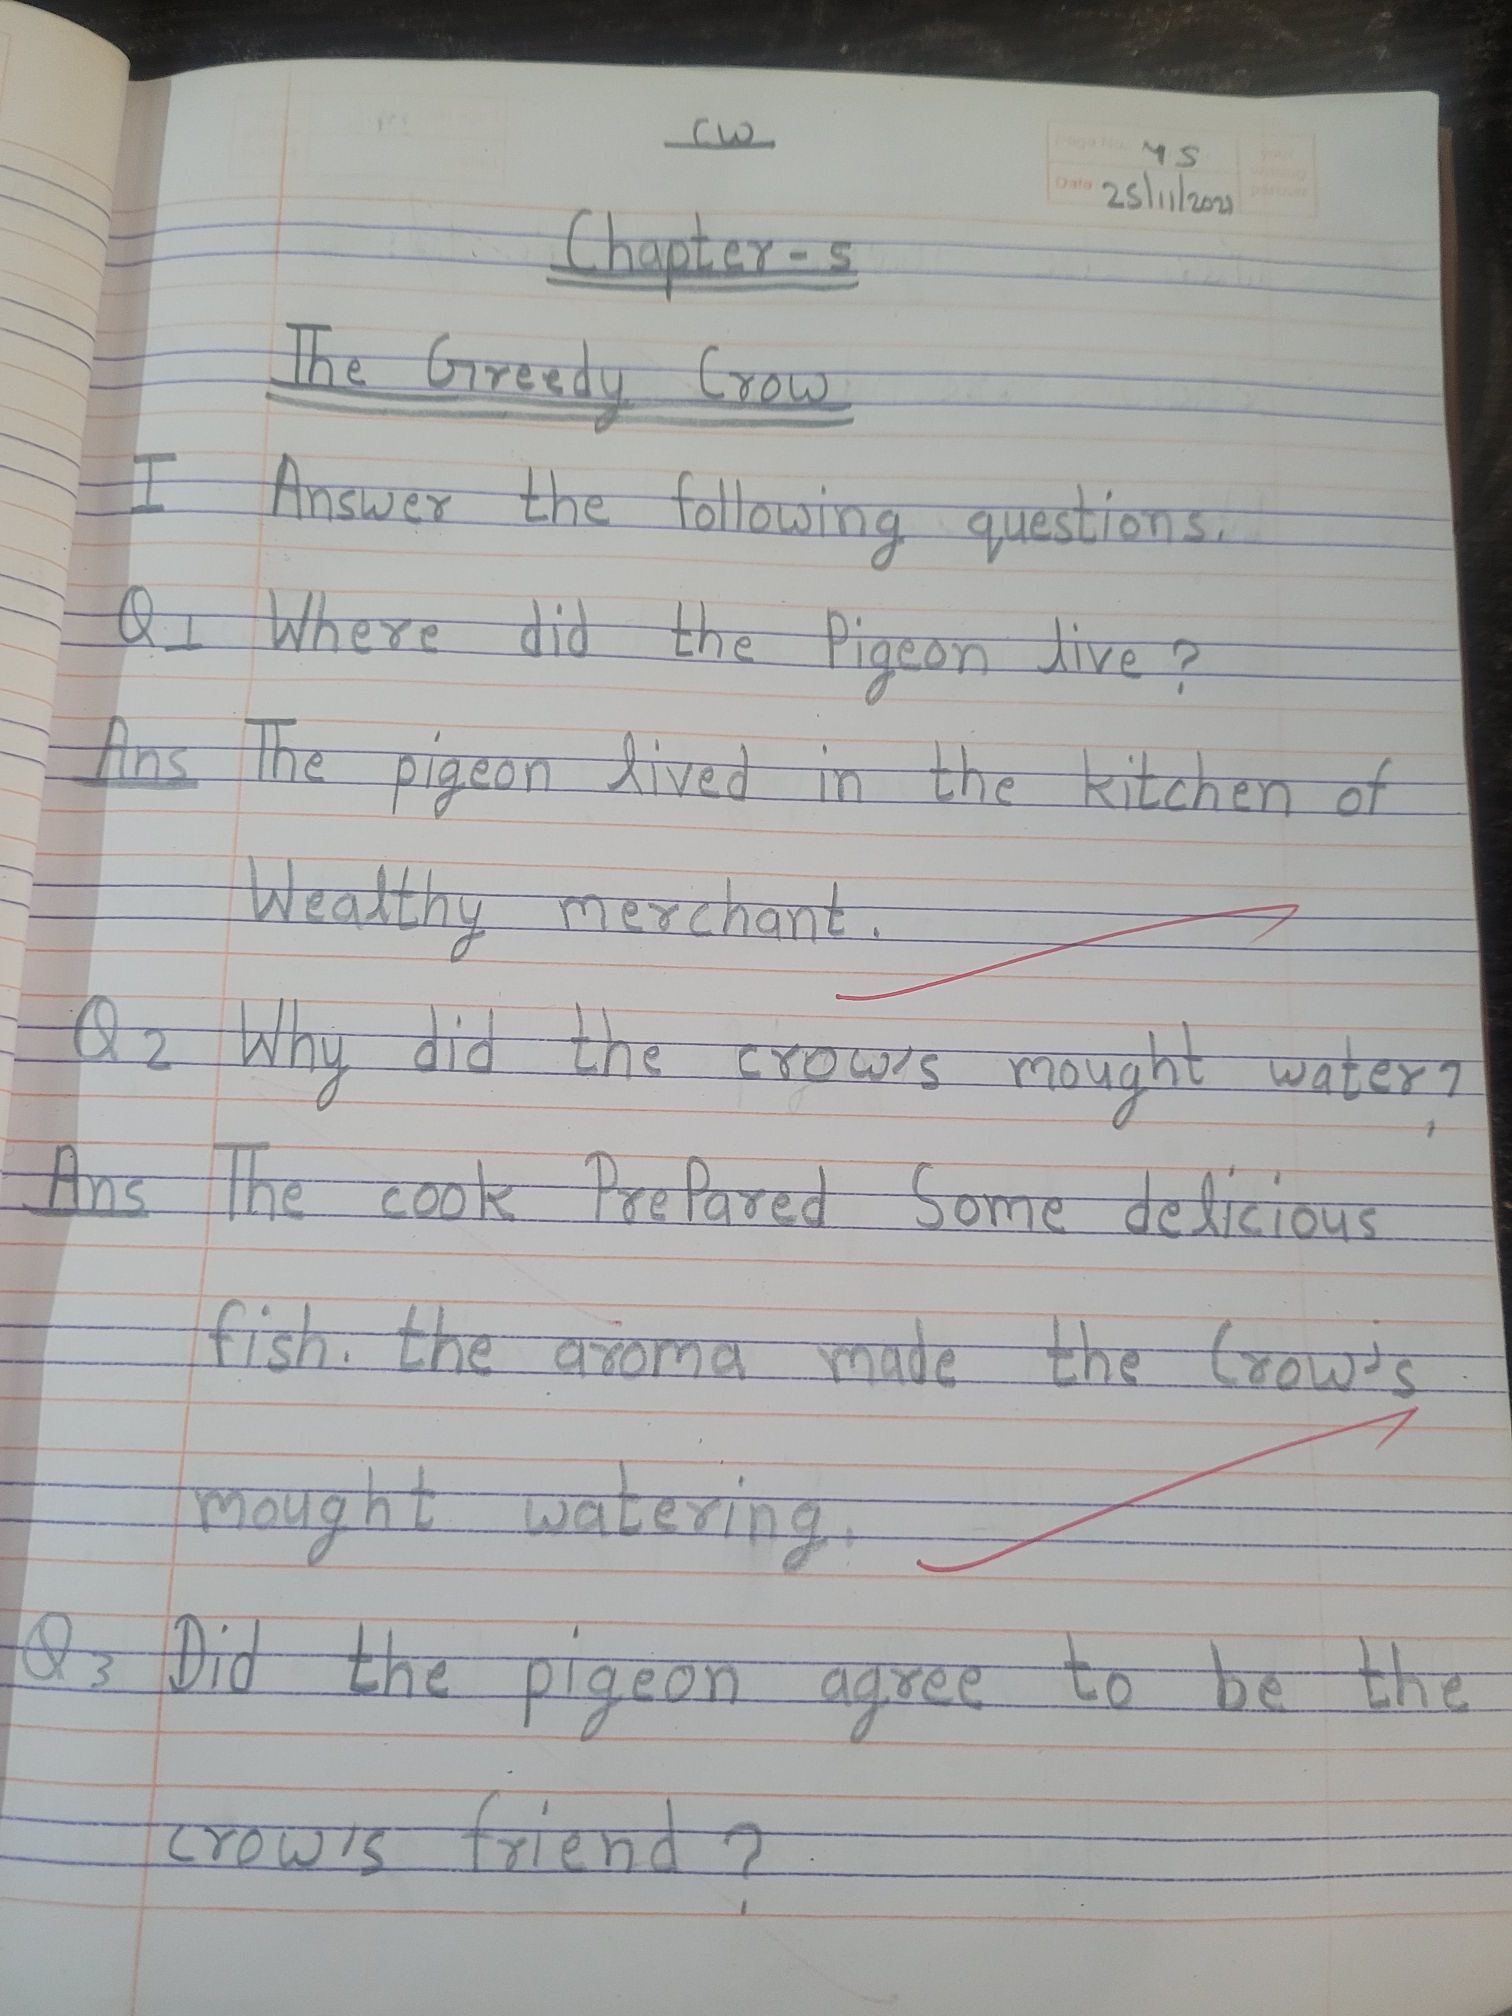 CW
45
Date 25/11/2021
Chapter-5
The Greedy Crow
I Answer the following questions.
Q1 Where did the Pigeon live?
Ans The pigeon lived in the kitchen of
Wealthy merchant.
Q2 Why did the crow's mought water?
Ans The cook PrePared Some delicious
fish. the aroma made the Crow's
mought watering.
Q3 Did the pigeon agree to be the
crow's friend?